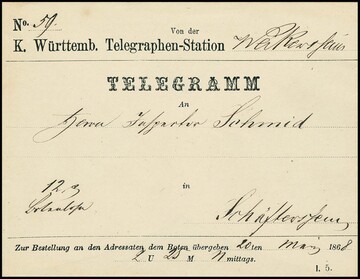 No. 59.
Von der
K. Württemb. Telegraphen-Station Weikersheim
TELEGRAMM
An
Herrn Inspector Schmid
12 x
Botenlohn
in
Schäftersheim
Zur Bestellung an den Adressaten dem Boten übergeben 20ten Mai 1868
2 U 25 M N mittags.
l. 5.